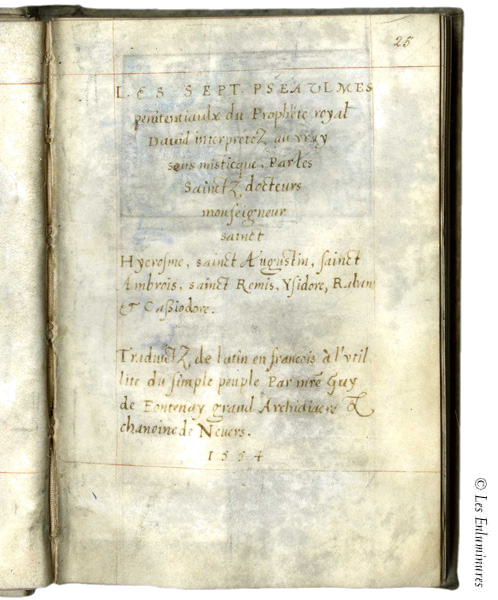 25
LES SEPT PSEAULMES
penitentiaulx du Prophete royal
David interpretez au vray
sens misticque. Par les
Sainctz docteurs
monseigneur
sainct
Hyerosme, sainct Augustin, sainct
Ambrois, sainct Remis, Ysidore, Raban
et Cassiodore.
Traduictz de latin en francois à l'util
lité du simple peuple Par mre Guy
de Fontenay grand Archidiacre &
chanoine de Nevers.
1554
© Les Enluminures